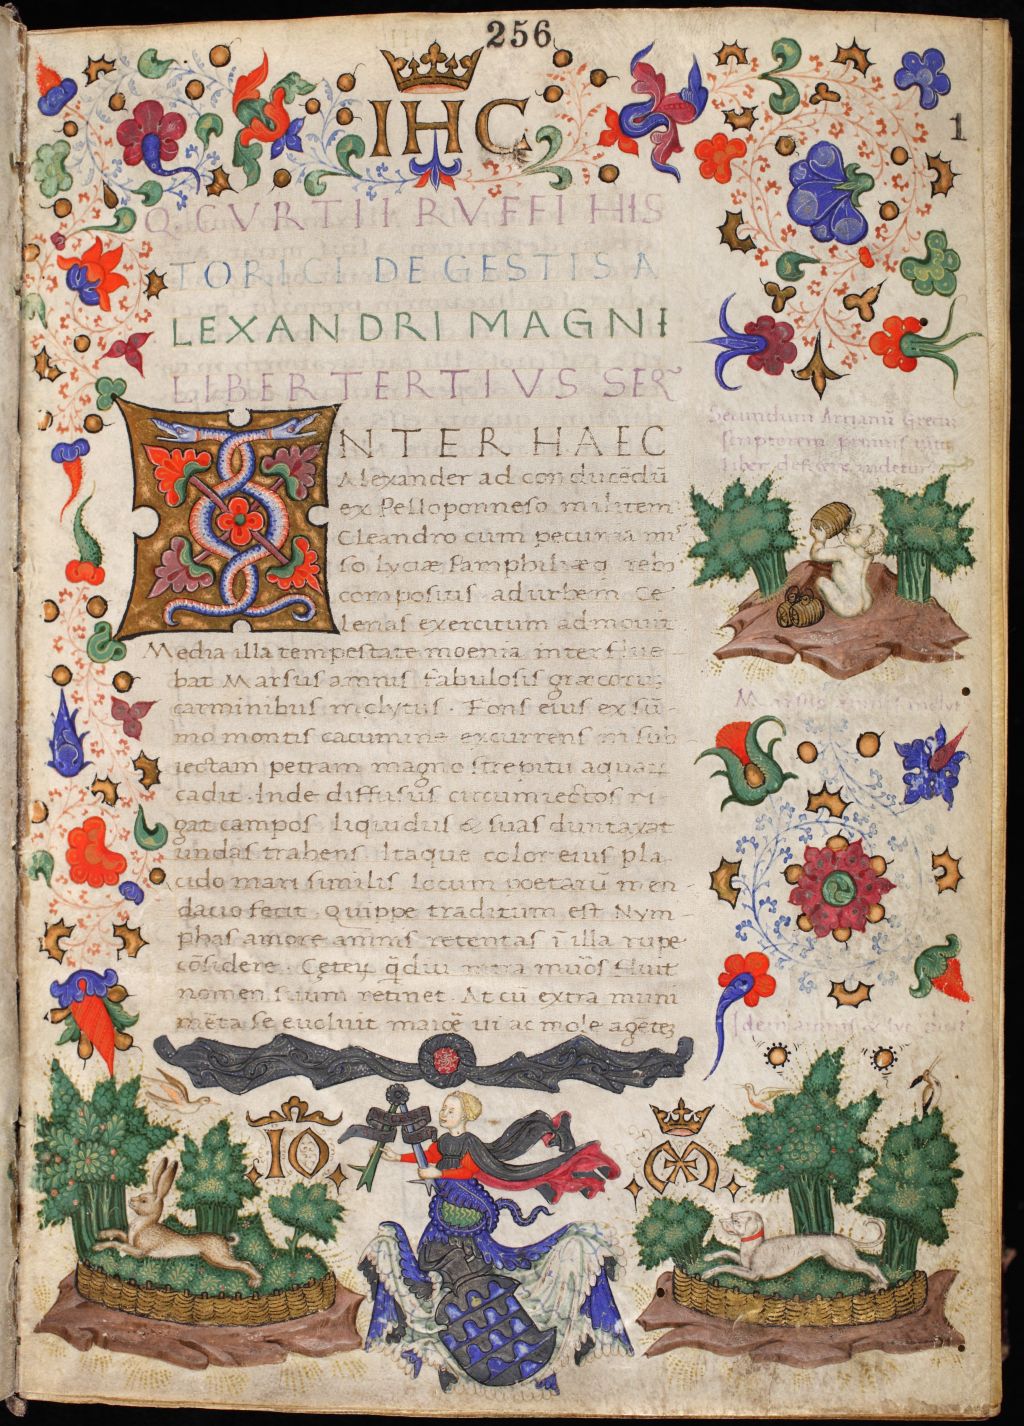 256
IHC
1
Q. CVRTII RVFFI HIS
TORICI DE GESTIS A
LEXANDRI MAGNI
LIBER TERTIVS SER
INTER HAEC
Alexander ad conducēdū
ex Pelloponneso militem
Cleandro cum pecunia mis
so lyciæ Pamphiliæq rebȝ
compositis ad urbem Ce
lenas exercitum admouit
Media illa tempestate moenia interflue
bat Marsus amnis fabulosis græcorum
carminibus inclytus. Fons eius ex sū-
mo montis cacumine excurrens in sub
iectam petram magno strepitu aquaꝝ
cadit. Inde diffusus circumiectos ri
gat campos liquidus & suas duntaxat
undas trahens. Itaque color eius pla
cido mari similis locum poetarū men-
dacio fecit. Quippe traditum est Nym-
phas amore amnis retentas ī illa rupe
cōsidere. Cęteꝝ q̄diu intra muros fluit
nomen suum retinet. At cū extra muni
mēta se euoluit maiorē ui ac mole agētem
Secundum Arrianū Grecū
scriptorem primus
liber deficere videtur
Marsus
Idem amnis
IO
M